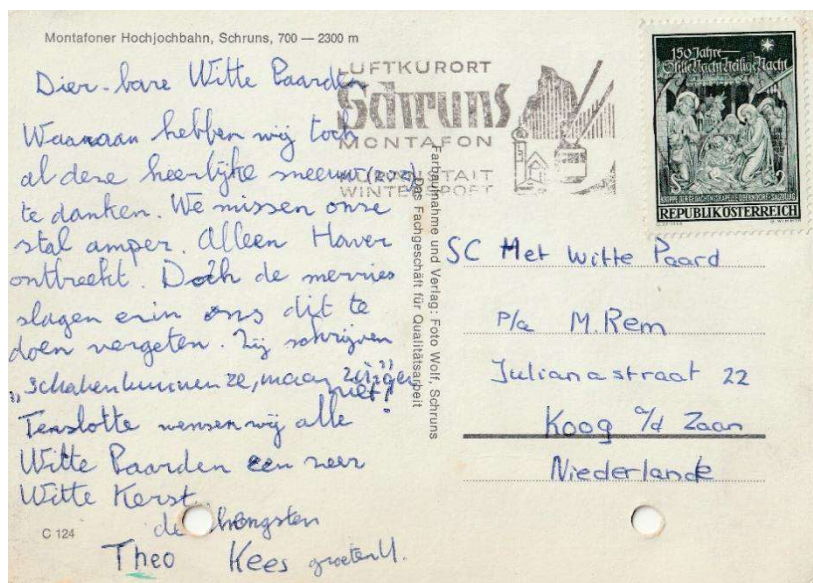 Montafoner Hochjochbahn, Schruns, 700 — 2300 m
Dier-bare Witte Paarden
Waaraan hebben wij toch
al deze heerlijke sneeuw
te danken. We missen onze
stal amper. Alleen Haver
ontbreekt. Doch de merries
slagen erin ons dit te
doen vergeten. Zij schrijven
"schaken kunnen ze, maar zingen
niet!"
Tenslotte wensen wij alle
Witte Paarden een zeer
Witte Kerst
de hengsten
Theo Kees groeten
C 124
LUFTKURORT
Schruns
MONTAFON
WINTERSPORT
Farbaufnahme und Verlag: Foto Wolf, Schruns
Das Fachgeschäft für Qualitätsarbeit
150 Jahre
Stille Nacht, Heilige Nacht
S 2
KRIPPE IN DER GEDÄCHTNISKAPELLE OBERNDORF-SALZBURG
REPUBLIK ÖSTERREICH
SC Het Witte Paard
P/a M. Rem
Julianastraat 22
Koog a/d Zaan
Niederlande